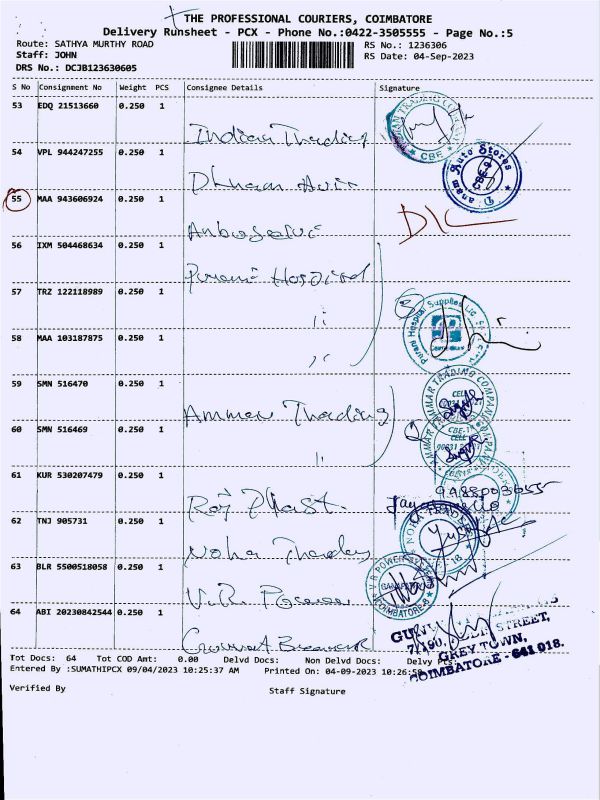 THE PROFESSIONAL COURIERS, COIMBATORE
Delivery Runsheet - PCX - Phone No.:0422-3505555 - Page No.:5
Route: SATHYA MURTHY ROAD
RS No.: 1236306
Staff: JOHN
RS Date: 04-Sep-2023
DRS No.: DCJB123630605
S No Consignment No Weight PCS Consignee Details Signature
53 EDQ 21513660 0.250 1
Indian Trading
54 VPL 944247255 0.250 1
55 MAA 943606924 0.250 1
56 IXM 504468634 0.250 1
Purani Hospital
57 TRZ 122118989 0.250 1
"
58 MAA 103187875 0.250 1
"
59 SMN 516470 0.250 1
Amman Trading
60 SMN 516469 0.250 1
"
61 KUR 530207479 0.250 1
Raj Plast.
62 TNJ 905731 0.250 1
Noha Traders
63 BLR 5500518058 0.250 1
V.R. Power
64 ABI 20230842544 0.250 1
TRADING COMPANY
CBE
Auto Stores
Purani Hospital Supplies
AMMAR TRADING COMPANY
V R POWER
COIMBATORE
STREET,
GREY TOWN,
COIMBATORE - 641 018.
Tot Docs: 64 Tot COD Amt: 0.00 Delvd Docs: Non Delvd Docs: Delvy
Entered By :SUMATHIPCX 09/04/2023 10:25:37 AM Printed On: 04-09-2023 10:26:
Verified By
Staff Signature